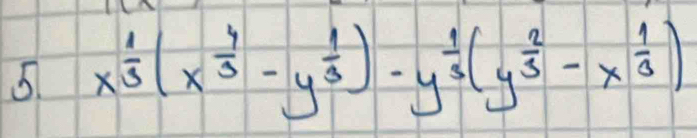 5. x^{1/3}(x^{4/3} - y^{1/3}) - y^{1/3}(y^{2/3} - x^{1/3})